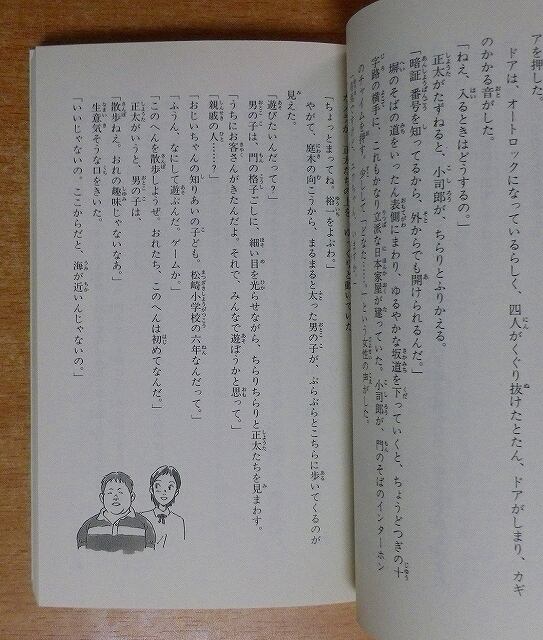 アを押した。
ドアは、オートロックになっているらしく、四人がくぐり抜けたとたん、ドアがしまり、カギ
のかかる音がした。
「ねえ、入るときはどうするの。」
正太がたずねると、小司郎が、ちらりとふりかえる。
「暗証番号を知ってるから、外からでも開けられるんだ。」
塀のそばの道をいったん表側にまわり、ゆるやかな坂道を下っていくと、ちょうどつぎの十
字路の横手に、これもかなり立派な日本家屋が建っていた。小司郎が、門のそばのインターホン
のチャイムを押す。少しして、「どなた……？」という女性の声がした。
「ちょっとまってね。裕一をよぶわ。」
やがて、庭木の向こうから、まるまると太った男の子が、ぶらぶらとこちらに歩いてくるのが
見えた。
「遊びたいんだって？」
男の子は、門の格子ごしに、細い目を光らせながら、ちらりちらりと正太たちを見まわす。
「うちにお客さんがきたんだよ。それで、みんなで遊ぼうかと思って。」
「親戚の人……？」
「おじいちゃんの知りあいの子ども。松崎小学校の六年なんだって。」
「ふうん、なにして遊ぶんだ。ゲームか。」
「このへんを散歩しようぜ。おれたち、このへんは初めてなんだ。」
正太がいうと、男の子は、
「散歩ねえ。おれの趣味じゃないなあ。」
生意気そうな口をきいた。
「いいじゃないの。ここからだと、海が近いんじゃないの。」